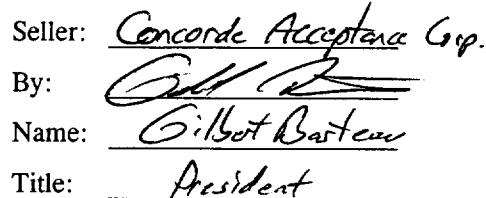 Seller: Concorde Acceptance Corp.
By:
Name: Gilbert
Title: President